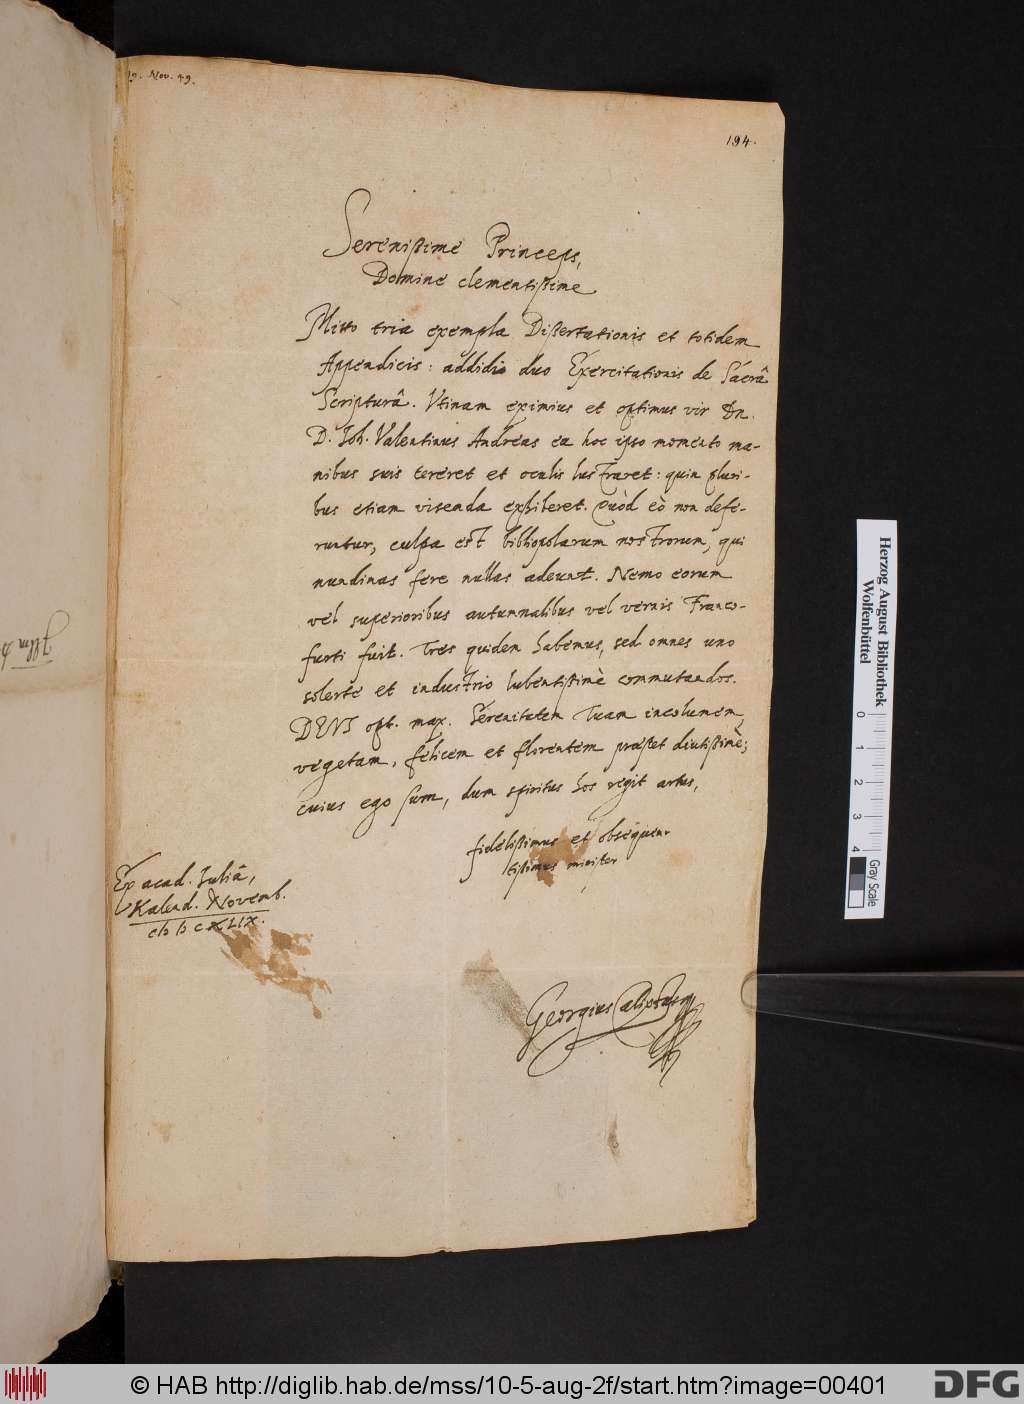 19. Nov. 49.
194.
Serenissime Princeps,
Domine clementissime
Mitto tria exempla Dissertationis et totidem
Appendicis: addidi duo Exercitationis de Sacrâ
Scripturâ. Vtinam eximius et optimus vir Dn.
D. Joh. Valentinus Andreas ea hoc ipso momento ma-
nibus suis tereret et oculis lustraret: quin pluri-
bus etiam visenda exhiberet. Quòd eò non defe-
runtur, culpa est bibliopolarum nostrorum, qui
nundinas fere nullas adeunt. Nemo eorum
vel superioribus autumnalibus vel vernis Franco-
furti fuit. Tres quidem habemus, sed omnes uno
solerte et industrio lubentissimè commutandos.
DEUS opt. max. Serenitatem Tuam incolumem,
vegetam, felicem et florentem praestet diutissimè;
cuius ego sum, dum spiritus hos regit artus,
fidelissimus et obsequen-
tissimus minister
Ex acad. Juliâ,
Kalend. Novemb.
cIɔ Iɔ c XLIX.
Georgius Calixtus
Herzog August Bibliothek
Wolfenbüttel
0 1 2 3 4
Gray Scale
© HAB http://diglib.hab.de/mss/10-5-aug-2f/start.htm?image=00401
DFG